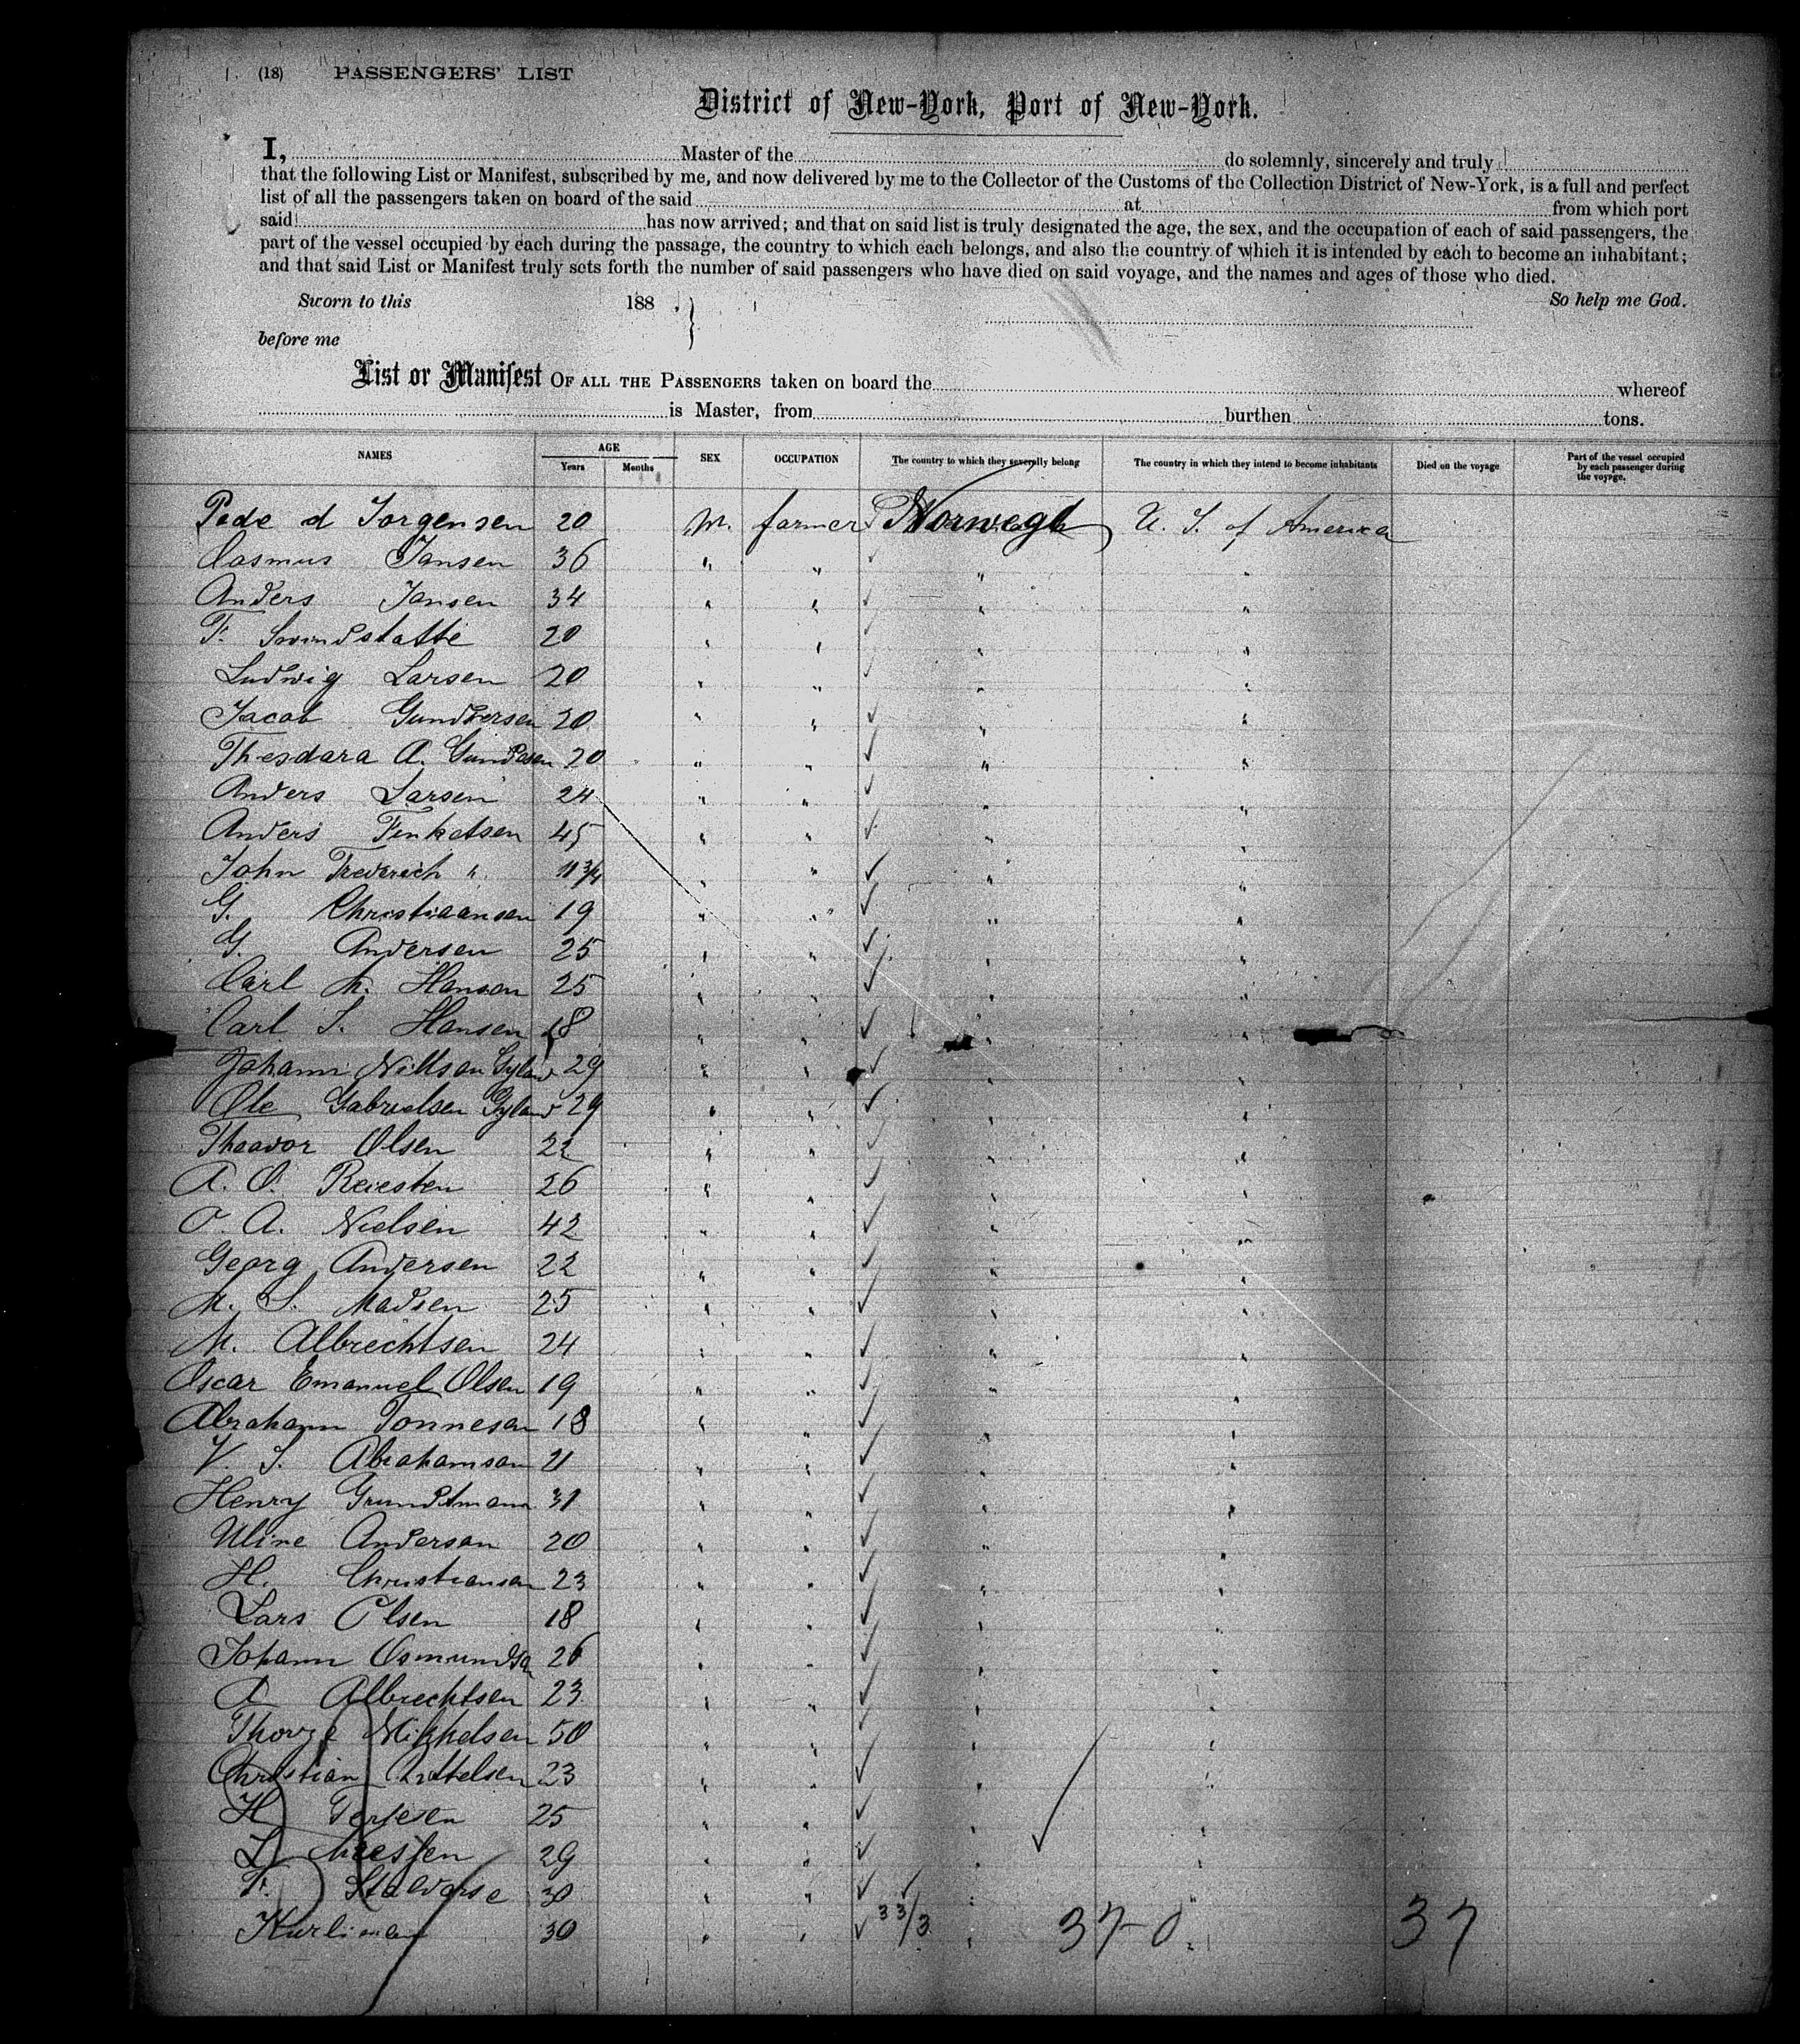 (18) PASSENGERS' LIST
District of New-York, Port of New-York.
I, Master of the do solemnly, sincerely and truly
that the following List or Manifest, subscribed by me, and now delivered by me to the Collector of the Customs of the Collection District of New-York, is a full and perfect
list of all the passengers taken on board of the said at from which port
said has now arrived; and that on said list is truly designated the age, the sex, and the occupation of each of said passengers, the
part of the vessel occupied by each during the passage, the country to which each belongs, and also the country of which it is intended by each to become an inhabitant;
and that said List or Manifest truly sets forth the number of said passengers who have died on said voyage, and the names and ages of those who died.
Sworn to this 188 . So help me God.
before me
List or Manifest OF ALL THE PASSENGERS taken on board the whereof
is Master, from burthen tons.
NAMES AGE Years Months SEX OCCUPATION The country to which they severally belong The country in which they intend to become inhabitants Died on the voyage Part of the vessel occupied by each passenger during the voyage.
Pede d Jorgensen 20 m. farmer U. S. of America
Casmus Jansen 36 " " " "
Anders Jansen 34 " " " "
F. 20 " " " "
Ludwig Larsen 20 " " " "
Jacob Gundersen 20 " " " "
A. 20 " " " "
Anders Larsen 24 " " " "
Anders 45 " " " "
John Frederich " 11 3/4 " " " "
G. Christiaansen 19 " " " "
G. Andersen 25 " " " "
Carl M. Hansen 25 " " " "
Carl S. Hansen 18 " " " "
Johann Nillsen Gyland 29 " " " "
Ole Gabrielsen Gyland 29 " " " "
Theavor Olsen 22 " " " "
A. O. Reiesten 26 " " " "
O. A. Nielsen 42 " " " "
Georg Andersen 22 " " " "
M. S. Madsen 25 " " " "
M. Albrechtsen 24 " " " "
Oscar Emanuel Olsen 19 " " " "
Abraham Tonnesen 18 " " " "
V. S. Abrahamsen 21 " " " "
Henry Grundtmann 31 " " " "
Uline Andersen 20 " " " "
H. Christiansen 23 " " " "
Lars Olsen 18 " " " "
Johann Osmundsen 26 " " " "
A Albrechtsen 23 " " " "
Mikkelsen 50 " " " "
Christian Kittelsen 23 " " " "
H Terjesen 25 " " " "
L 29 " " " "
F. 30 " " " "
30 " " " 33/3 37-0 37